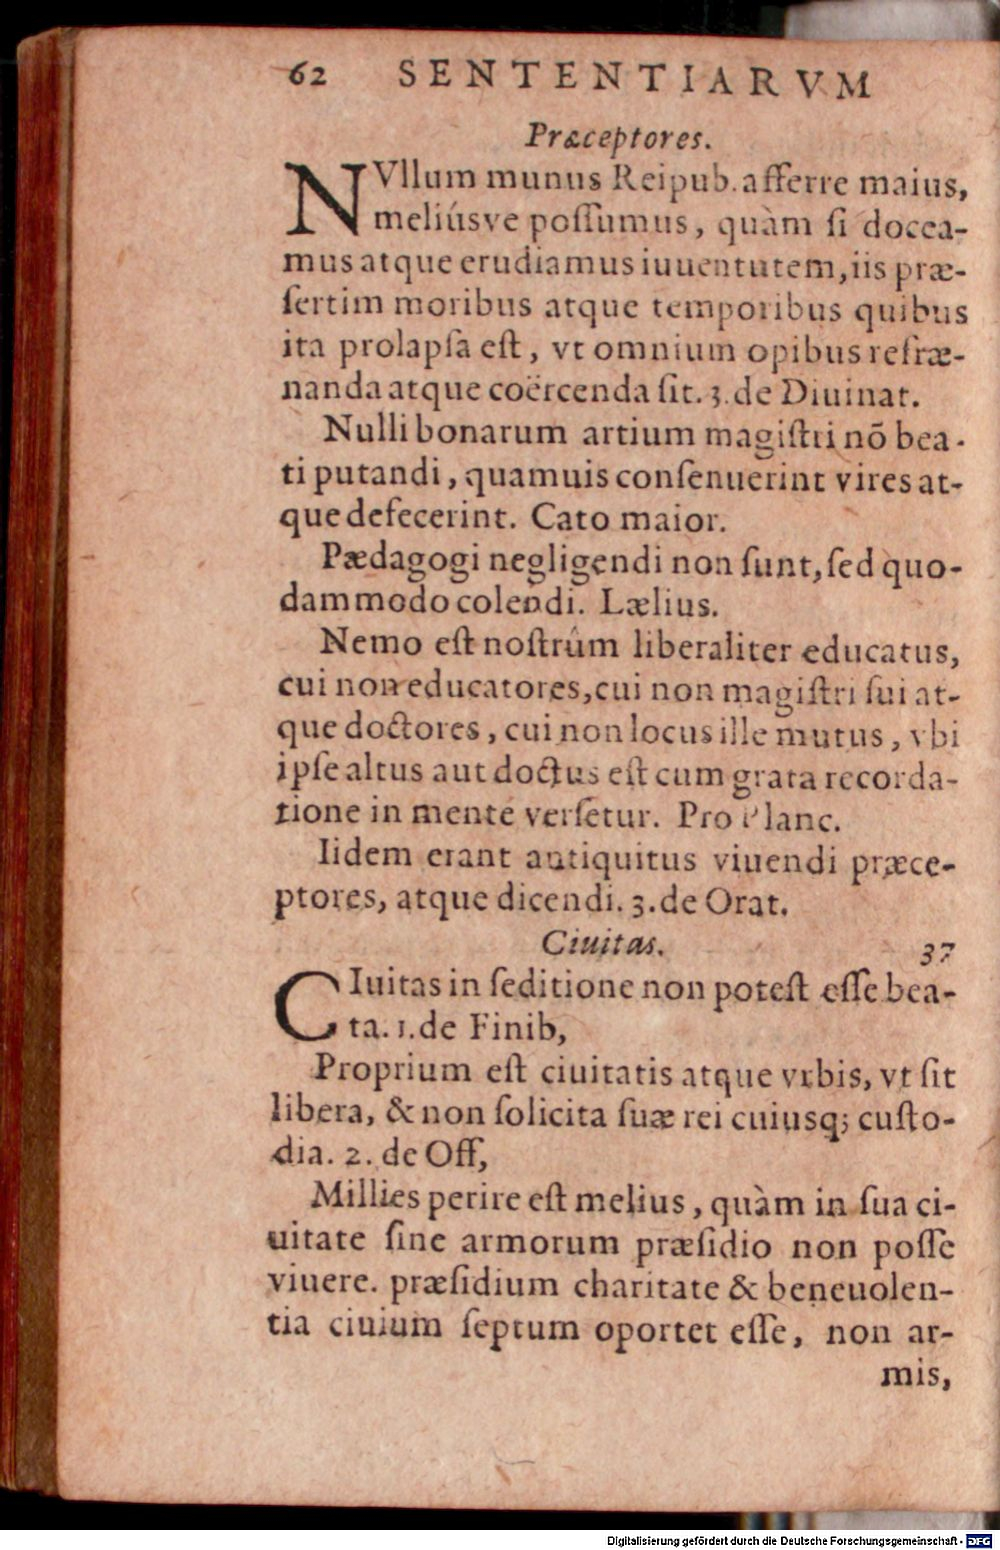 62 SENTENTIARVM
Præceptores.
NVllum munus Reipub. afferre maius,
meliúsve poſſumus, quàm ſi docea-
mus atque erudiamus iuuentutem, iis præ-
ſertim moribus atque temporibus quibus
ita prolapſa eſt, vt omnium opibus refræ-
nanda atque coërcenda ſit. 3. de Diuinat.
Nulli bonarum artium magiſtri nõ bea-
ti putandi, quamuis conſenuerint vires at-
que defecerint. Cato maior.
Pædagogi negligendi non ſunt, ſed quo-
dammodo colendi. Lælius.
Nemo eſt noſtrûm liberaliter educatus,
cui non educatores, cui non magiſtri ſui at-
que doctores, cui non locus ille mutus, vbi
ipſe altus aut doctus eſt cum grata recorda-
tione in mente verſetur. Pro Planc.
Iidem erant antiquitus viuendi præce-
ptores, atque dicendi. 3. de Orat.
Ciuitas. 37
CIuitas in ſeditione non poteſt eſſe bea-
ta. 1. de Finib,
Proprium eſt ciuitatis atque vrbis, vt ſit
libera, & non ſolicita ſuæ rei cuiusq; cuſto-
dia. 2. de Off,
Millies perire eſt melius, quàm in ſua ci-
uitate ſine armorum præſidio non poſſe
viuere. præſidium charitate & beneuolen-
tia ciuium ſeptum oportet eſſe, non ar-
mis,
Digitalisierung gefördert durch die Deutsche Forschungsgemeinschaft - DFG